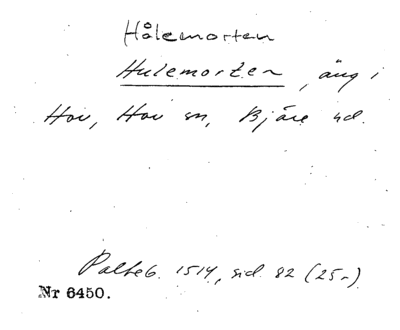 Hålemorten
Hulemorten, äng i
Hov, Hov sn, Bjäre hd.
Palteb. 1514, sid. 82 (25-)
Nr 6450.